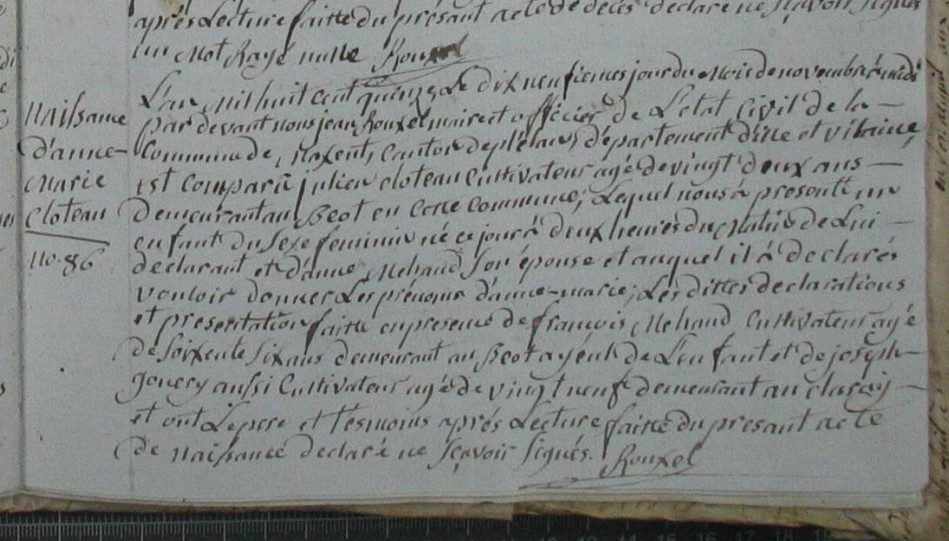 après Lecture faitte du présant acte de décès declaré ne sçavoir signés
un Mot Rayé nulle Rouxel
Naissance
d'anne-
Marie
cloteau
No. 86
L'an Mil huit cent quinze, Le dix neufiemes jour du Mois de novembre à midi
par devant nous jean Rouxel maire et officier de L'état Civil de la
Commune de Maxent, Canton de plélan, département d'ille et vilaine,
Est Comparû julien cloteau Cultivateur agé de vingt deux ans
Demeurant au Beot en Cette Commune; Lequel nous à présenté un
enfant du sexe feminin né ce jour à deux heures du Matin de Lui
declarant et d'anne Mehaud son épouse et auquel il à declarés
vouloir donner Les prénoms d'anne-marie; Les dittes declarations
et présentation faitte en presence de françois Mehaud Cultivateur agé
de soixente six ans demeurant au Beot ayeul de L'enfant et de joseph
gouery aussi Cultivateur agé de vingt neuf demeurant au
et ont Le pere et tesmoins après Lecture faitte du présant acte
de naissance declaré ne sçavoir signés. Rouxel